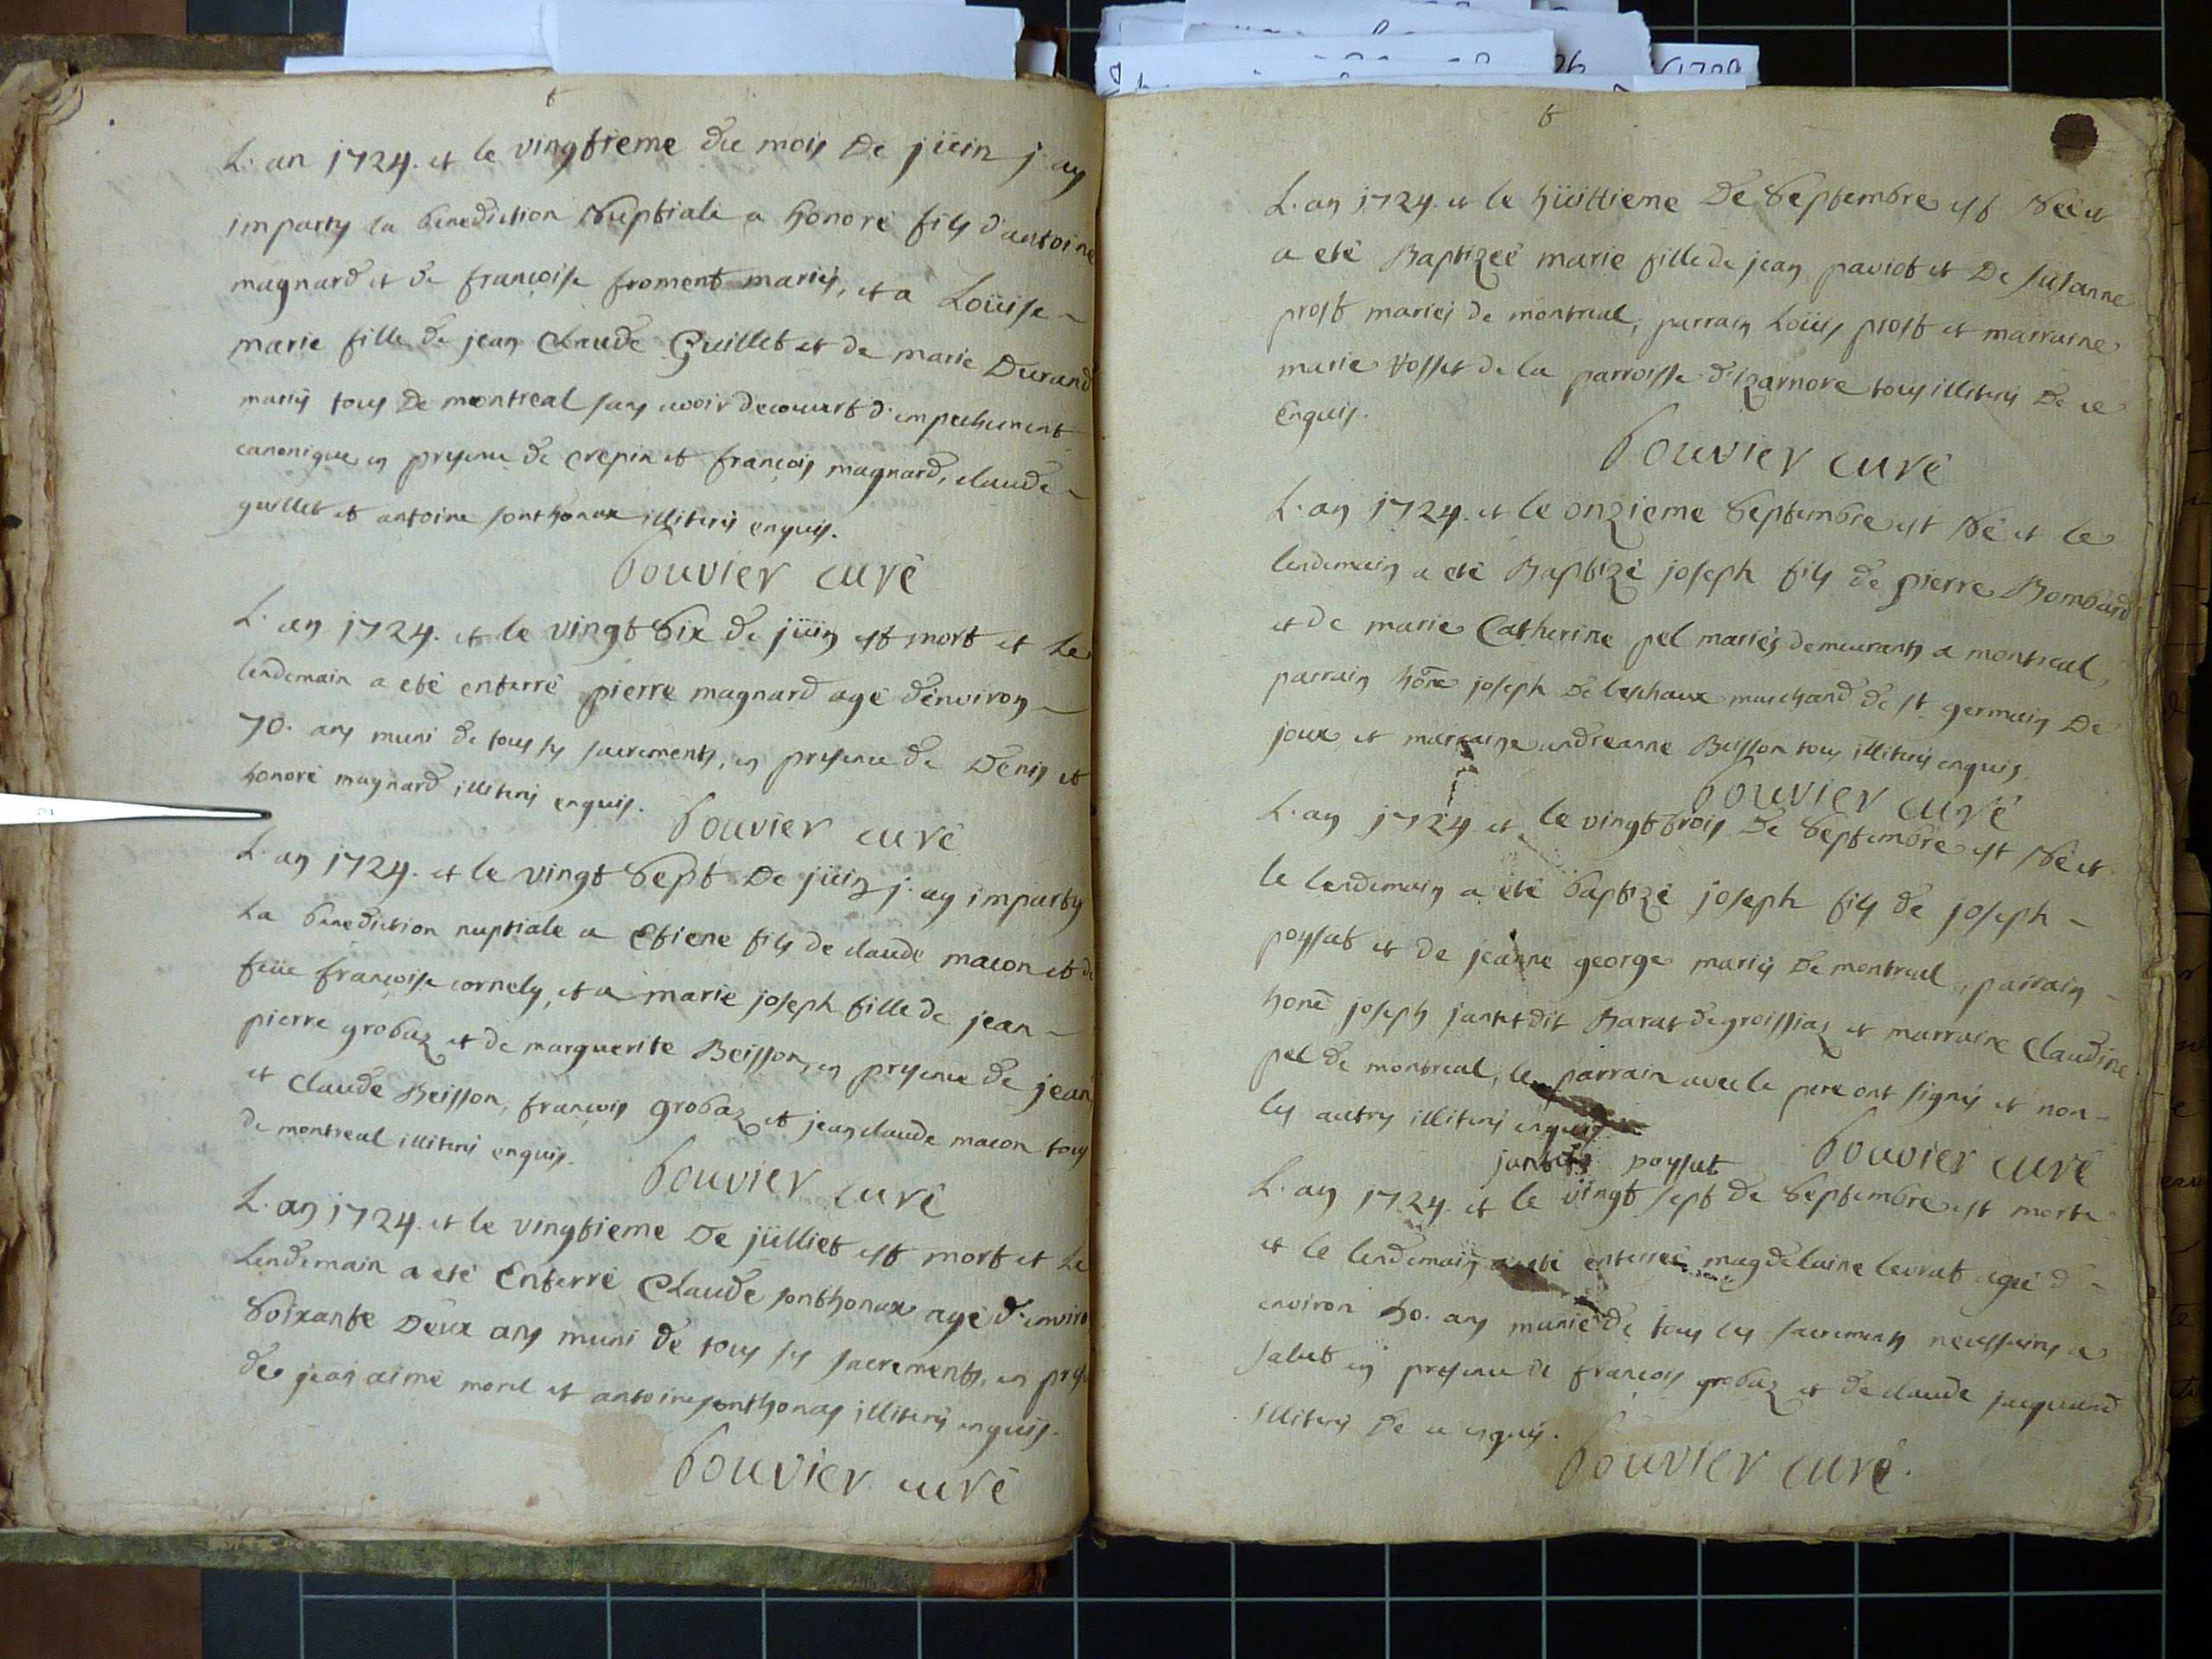 L'an 1724. et le vingtieme du mois De jüin j'ay
imparty la benediction Nuptiale a honoré fils d'antoine
magnard et de françoise froment mariés, et a Loüise
marie fille de jean Claude Guillet et de marie Durand
mariés tous De montreal sans avoir decouvert d'empechement
canonique en presence de crepin et françois magnard, claude
guillet et antoine sonthonax illiterés enquis.
bouvier curé
L'an 1724. et le vingt Six de jüin est mort et Le
lendemain a eté enterré pierre magnard agé d'environ
70. ans muni de tous ses sacrements, en presence de Denis et
honoré magnard illiterés enquis.
bouvier curé
L'an 1724. et le vingt Sept De jüin j'ay imparty
La benediction nuptiale a Etiene fils de claude macon et de
feüe françoise cornely, et a marie joseph fille de jean
pierre grobaz et de marguerite Beisson, en presence de jean
et Claude Beisson, françois grobaz et jean claude macon tous
de montreal illiterés enquis.
bouvier curé
L'an 1724. et le vingtieme De jülliet est mort et Le
Lendemain a eté Enterré Claude sonthonax agé d'enviro
Soixante Deux ans muni de tous ses sacrements, en prese
de jean aimé morel et antoine sonthonax illiterés enquis.
bouvier curé
L'an 1724. et le hüittieme De Septembre est Néé et
a eté Baptizéé marie fille de jean paviot et De susanne
prost mariés de montreal, parrain Loüis prost et marraine
marie Vosset de la parroisse d'izarnore tous illiterés De ce
Enquis.
bouvier curé
L'an 1724. et le onzieme Septembre est Né et le
lendemain a eté Baptizé joseph fils de pierre Bombard
et de marie Catherine pel mariés demeurants a montreal,
parrain hone joseph De leschaux marchand de st germain De
joux, et marraine andreanne Beisson tous illiterés enquis.
bouvier curé
L'an 1724. et le vingt trois De Septembre est Né et
le lendemain a eté baptizé joseph fils de joseph
poysat et de jeanne george mariés De montreal, parrain
hone joseph jantet dit Barat de groissiaz et marraine Claudine
pel de montreal, le parrain avec le pere ont signés et non
les autres illiterés enquis
jantet poysat bouvier curé
L'an 1724. et le vingt sept de Septembre est morte
et le lendemain a eté enterréé magdelaine levrat agéé d'
environ 50. ans muniée de tous les sacrements necessaires a
salut en presence de françois grobaz et de claude jacquand
illiterés De ce enquis.
bouvier curé.